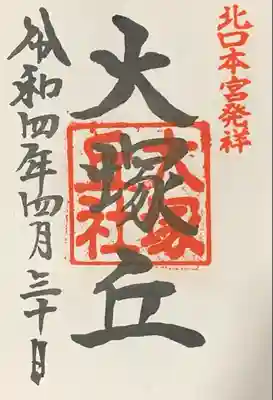 北口本宮発祥
大塚丘
大塚丘社
令和四年四月三十日